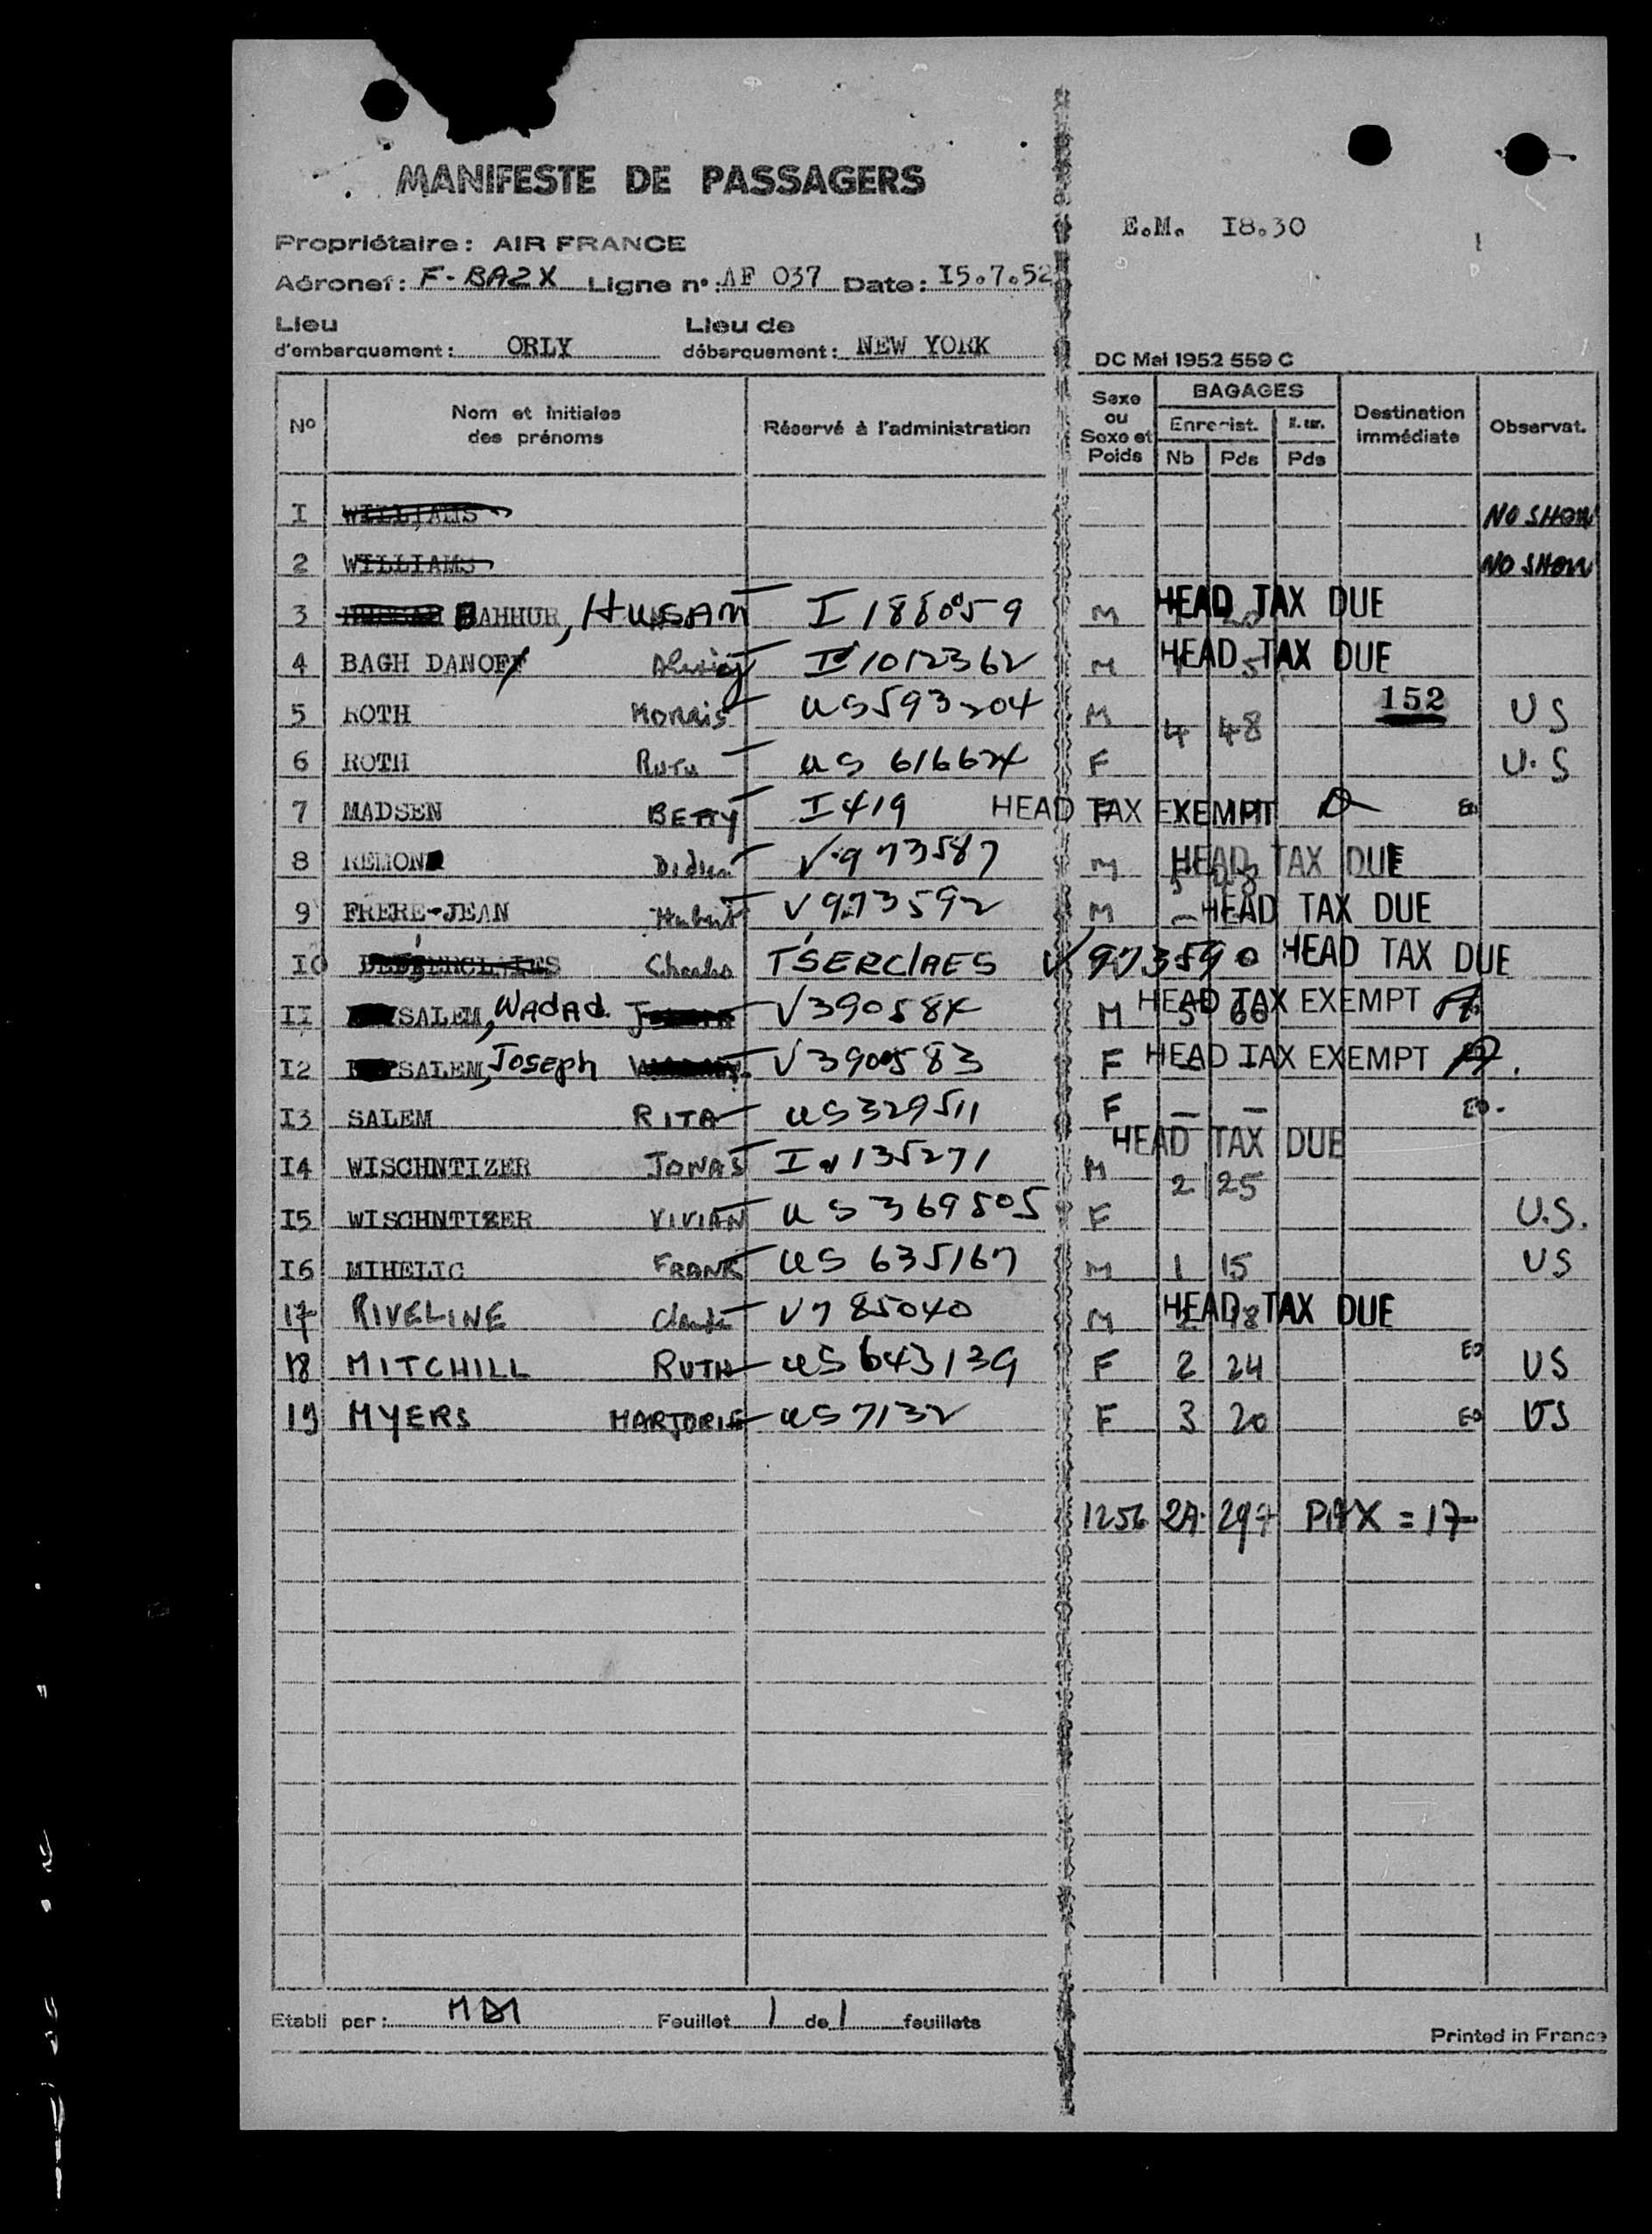 MANIFESTE DE PASSAGERS
E.M. I8.30
Propriétaire: AIR FRANCE
Aéronef: F-BAZX Ligne n°: AF 037 Date: I5.7.52
Lieu d'embarquement: ORLY Lieu de débarquement: NEW YORK
DC Mai 1952 559 C
N° Nom et initiales des prénoms Réservé à l'administration Sexe ou Sexe et Poids BAGAGES Enregist. Nb Pds Pds Destination immédiate Observat.
I WILLIAMS NO SHOW
2 WILLIAMS NO SHOW
3 BAHHUR, HUSAM M HEAD TAX DUE
4 BAGH DANOFF I 1012362 M HEAD TAX DUE
5 ROTH Morris US 593204 M 4 48 152 US
6 ROTH Ruth US 616624 F U.S
7 MADSEN BETTY I 419 F HEAD TAX EXEMPT
8 REMON V 973587 M HEAD TAX DUE
9 FRERE-JEAN Hubert V 973592 M - HEAD TAX DUE
I0 Charles T'SERCLAES V 973590 HEAD TAX DUE
II SALEM, Wadad V 390584 M 5 66 HEAD TAX EXEMPT
I2 SALEM, Joseph V 390583 F HEAD TAX EXEMPT
I3 SALEM RITA US 329511 F - -
I4 WISCHNTIZER JONAS I 135271 M 2 25 HEAD TAX DUE
I5 WISCHNTIZER VIVIAN US 369505 F U.S.
I6 MIHELIC FRANK US 635167 M 1 15 US
17 RIVELINE Claude V 785040 M HEAD TAX DUE
18 MITCHILL RUTH US 643139 F 2 24 US
19 MYERS MARJORIE US 7132 F 3 20 US
1256 27 297 PAX = 17
Etabli par: Feuillet 1 de 1 feuillets
Printed in France